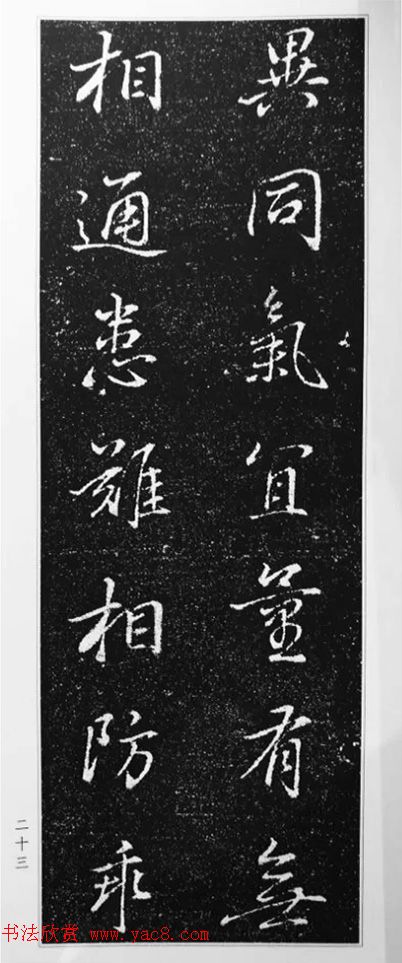 異同氣宜量有無
相通患難相防乖
二十三
书法欣赏 www.yac8.com